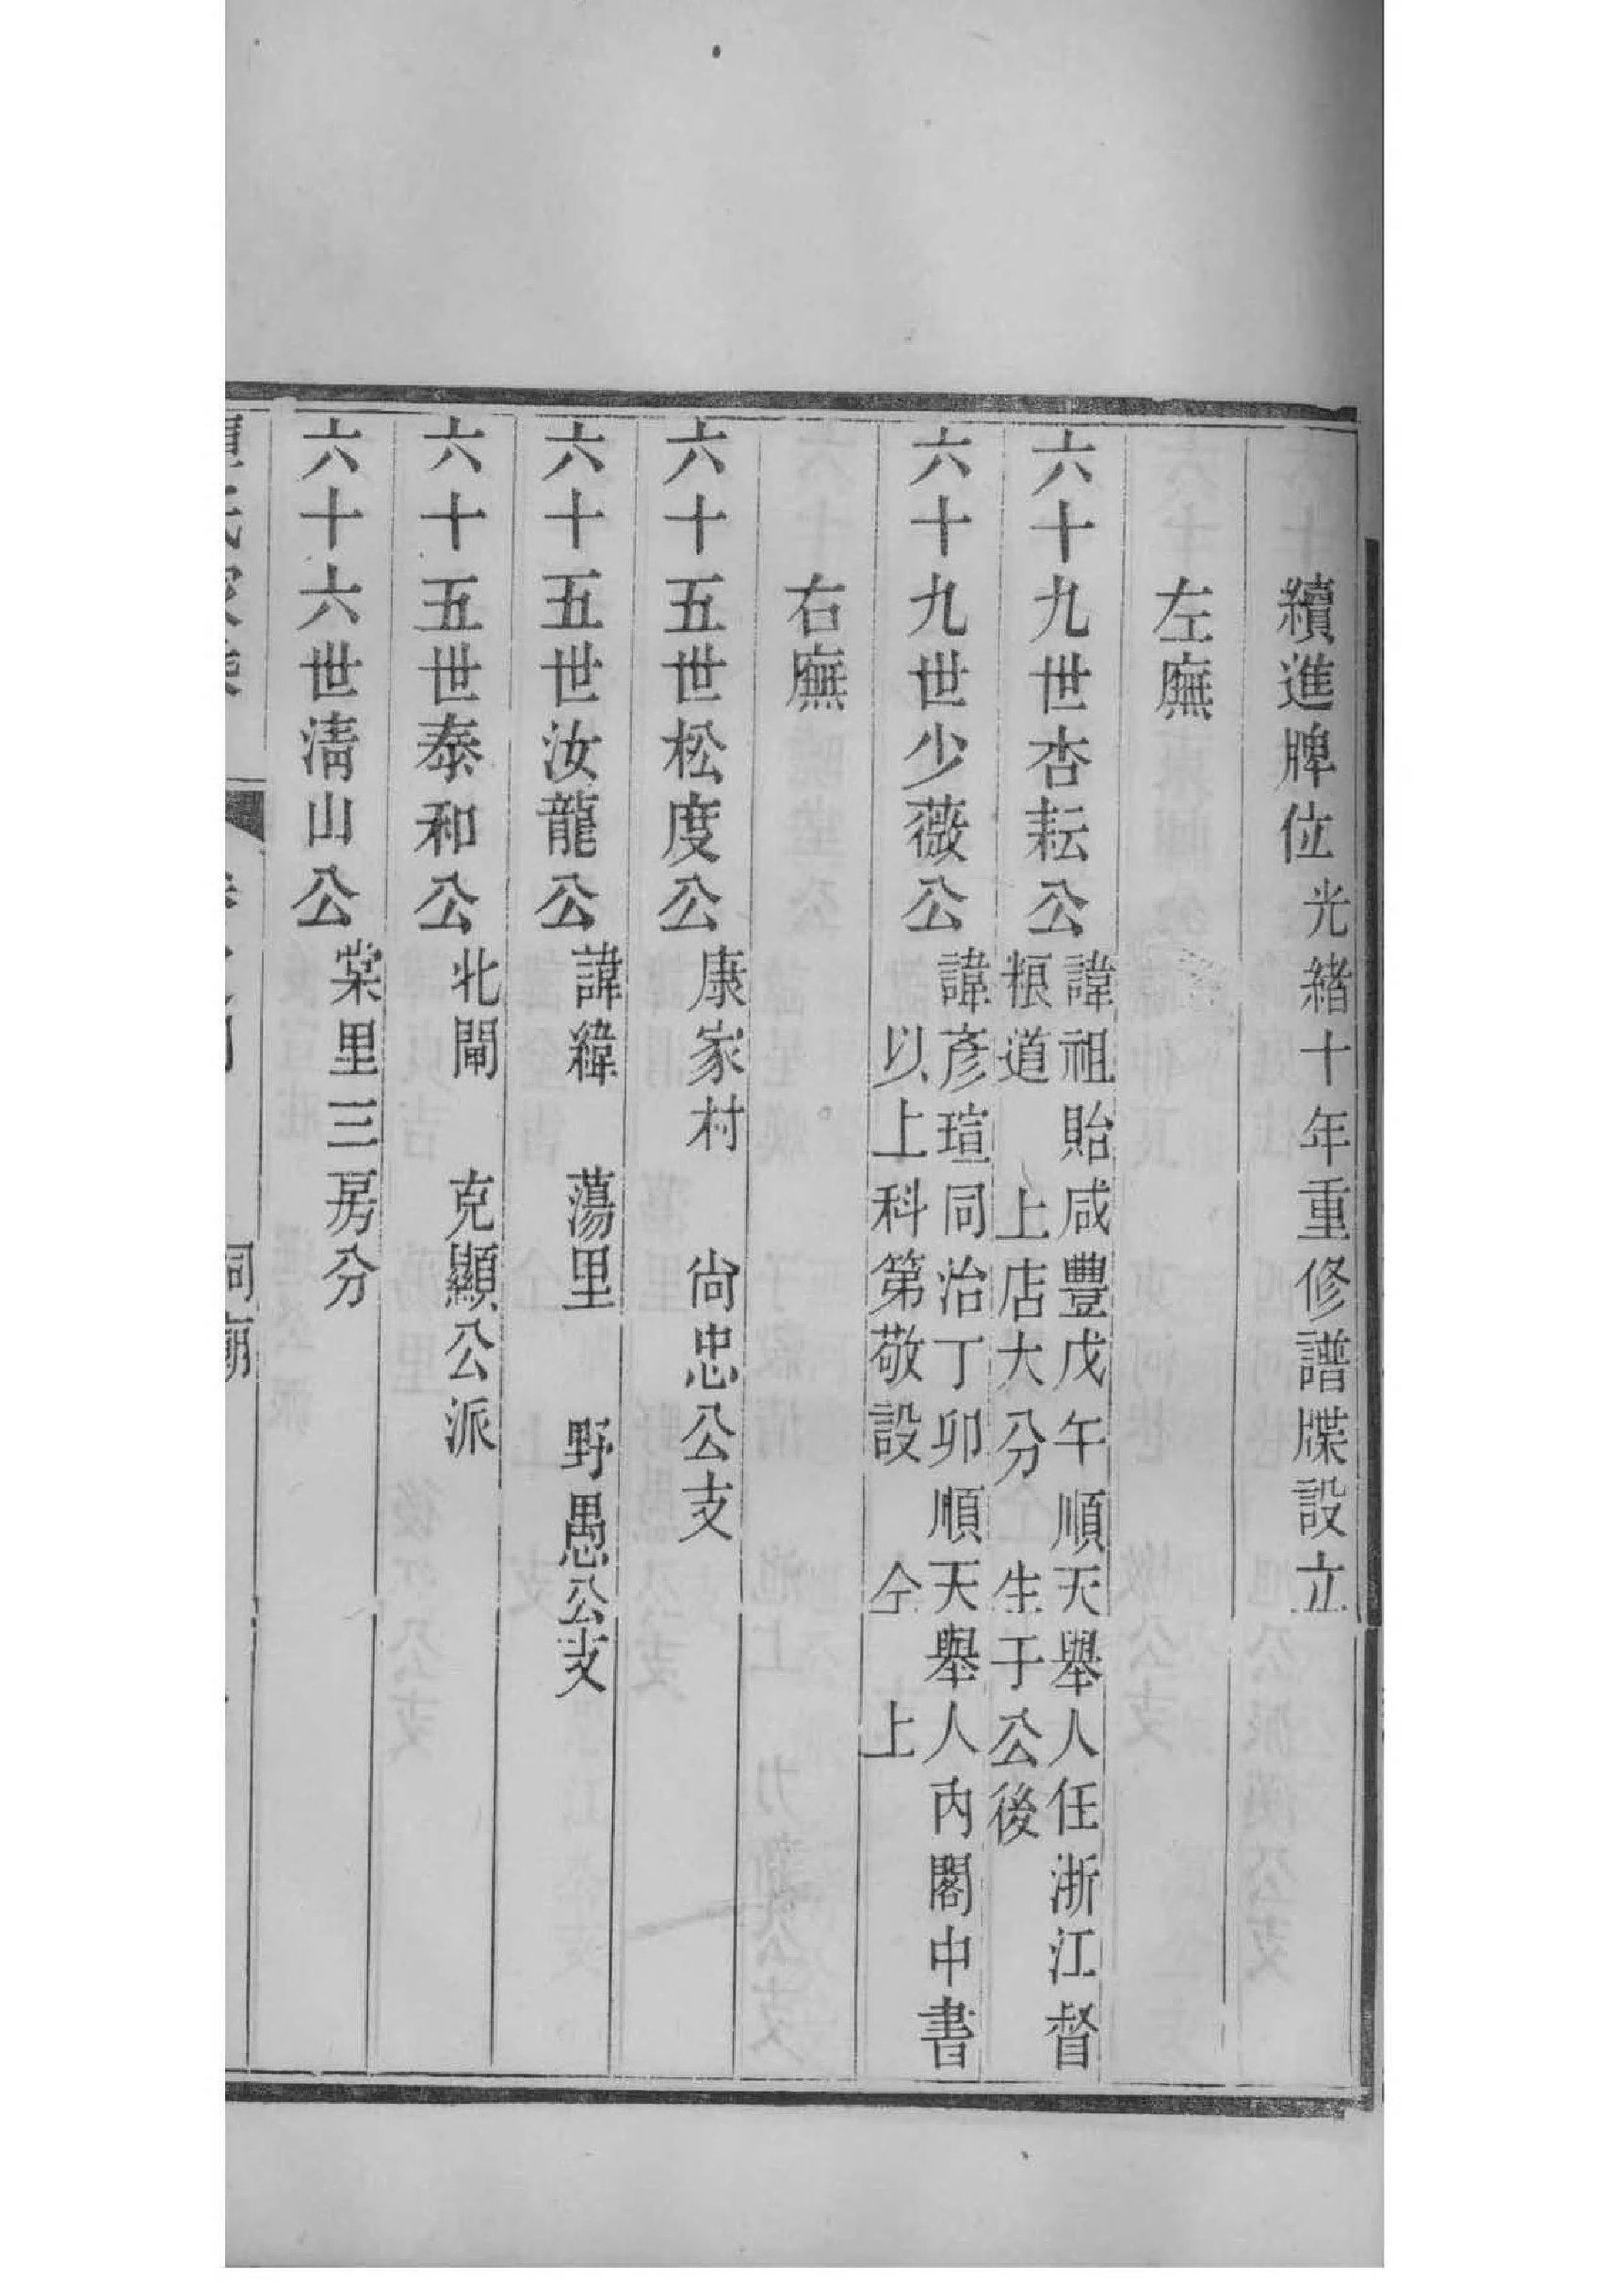 續進牌位光緒十年重修譜牒設立
左廡
六十九世杏耘公
諱祖貽咸豐戊午順天舉人任浙江督
粮道 上店大分 生于公後
六十九世少薇公
諱彥瑄同治丁卯順天舉人內閣中書
以上科第敬設 仝上
右廡
六十五世松度公康家村 尙忠公支
六十五世汝龍公諱緯 蕩里 野愚公支
六十五世泰和公北閘 克顯公派
六十六世淸山公棠里三房分
祠廟